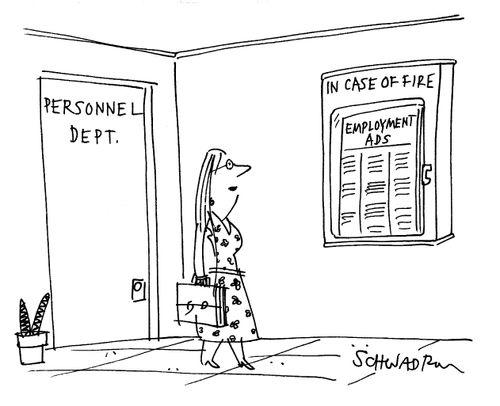 PERSONNEL
DEPT.
IN CASE OF FIRE
EMPLOYMENT
ADS
SCHWADRON